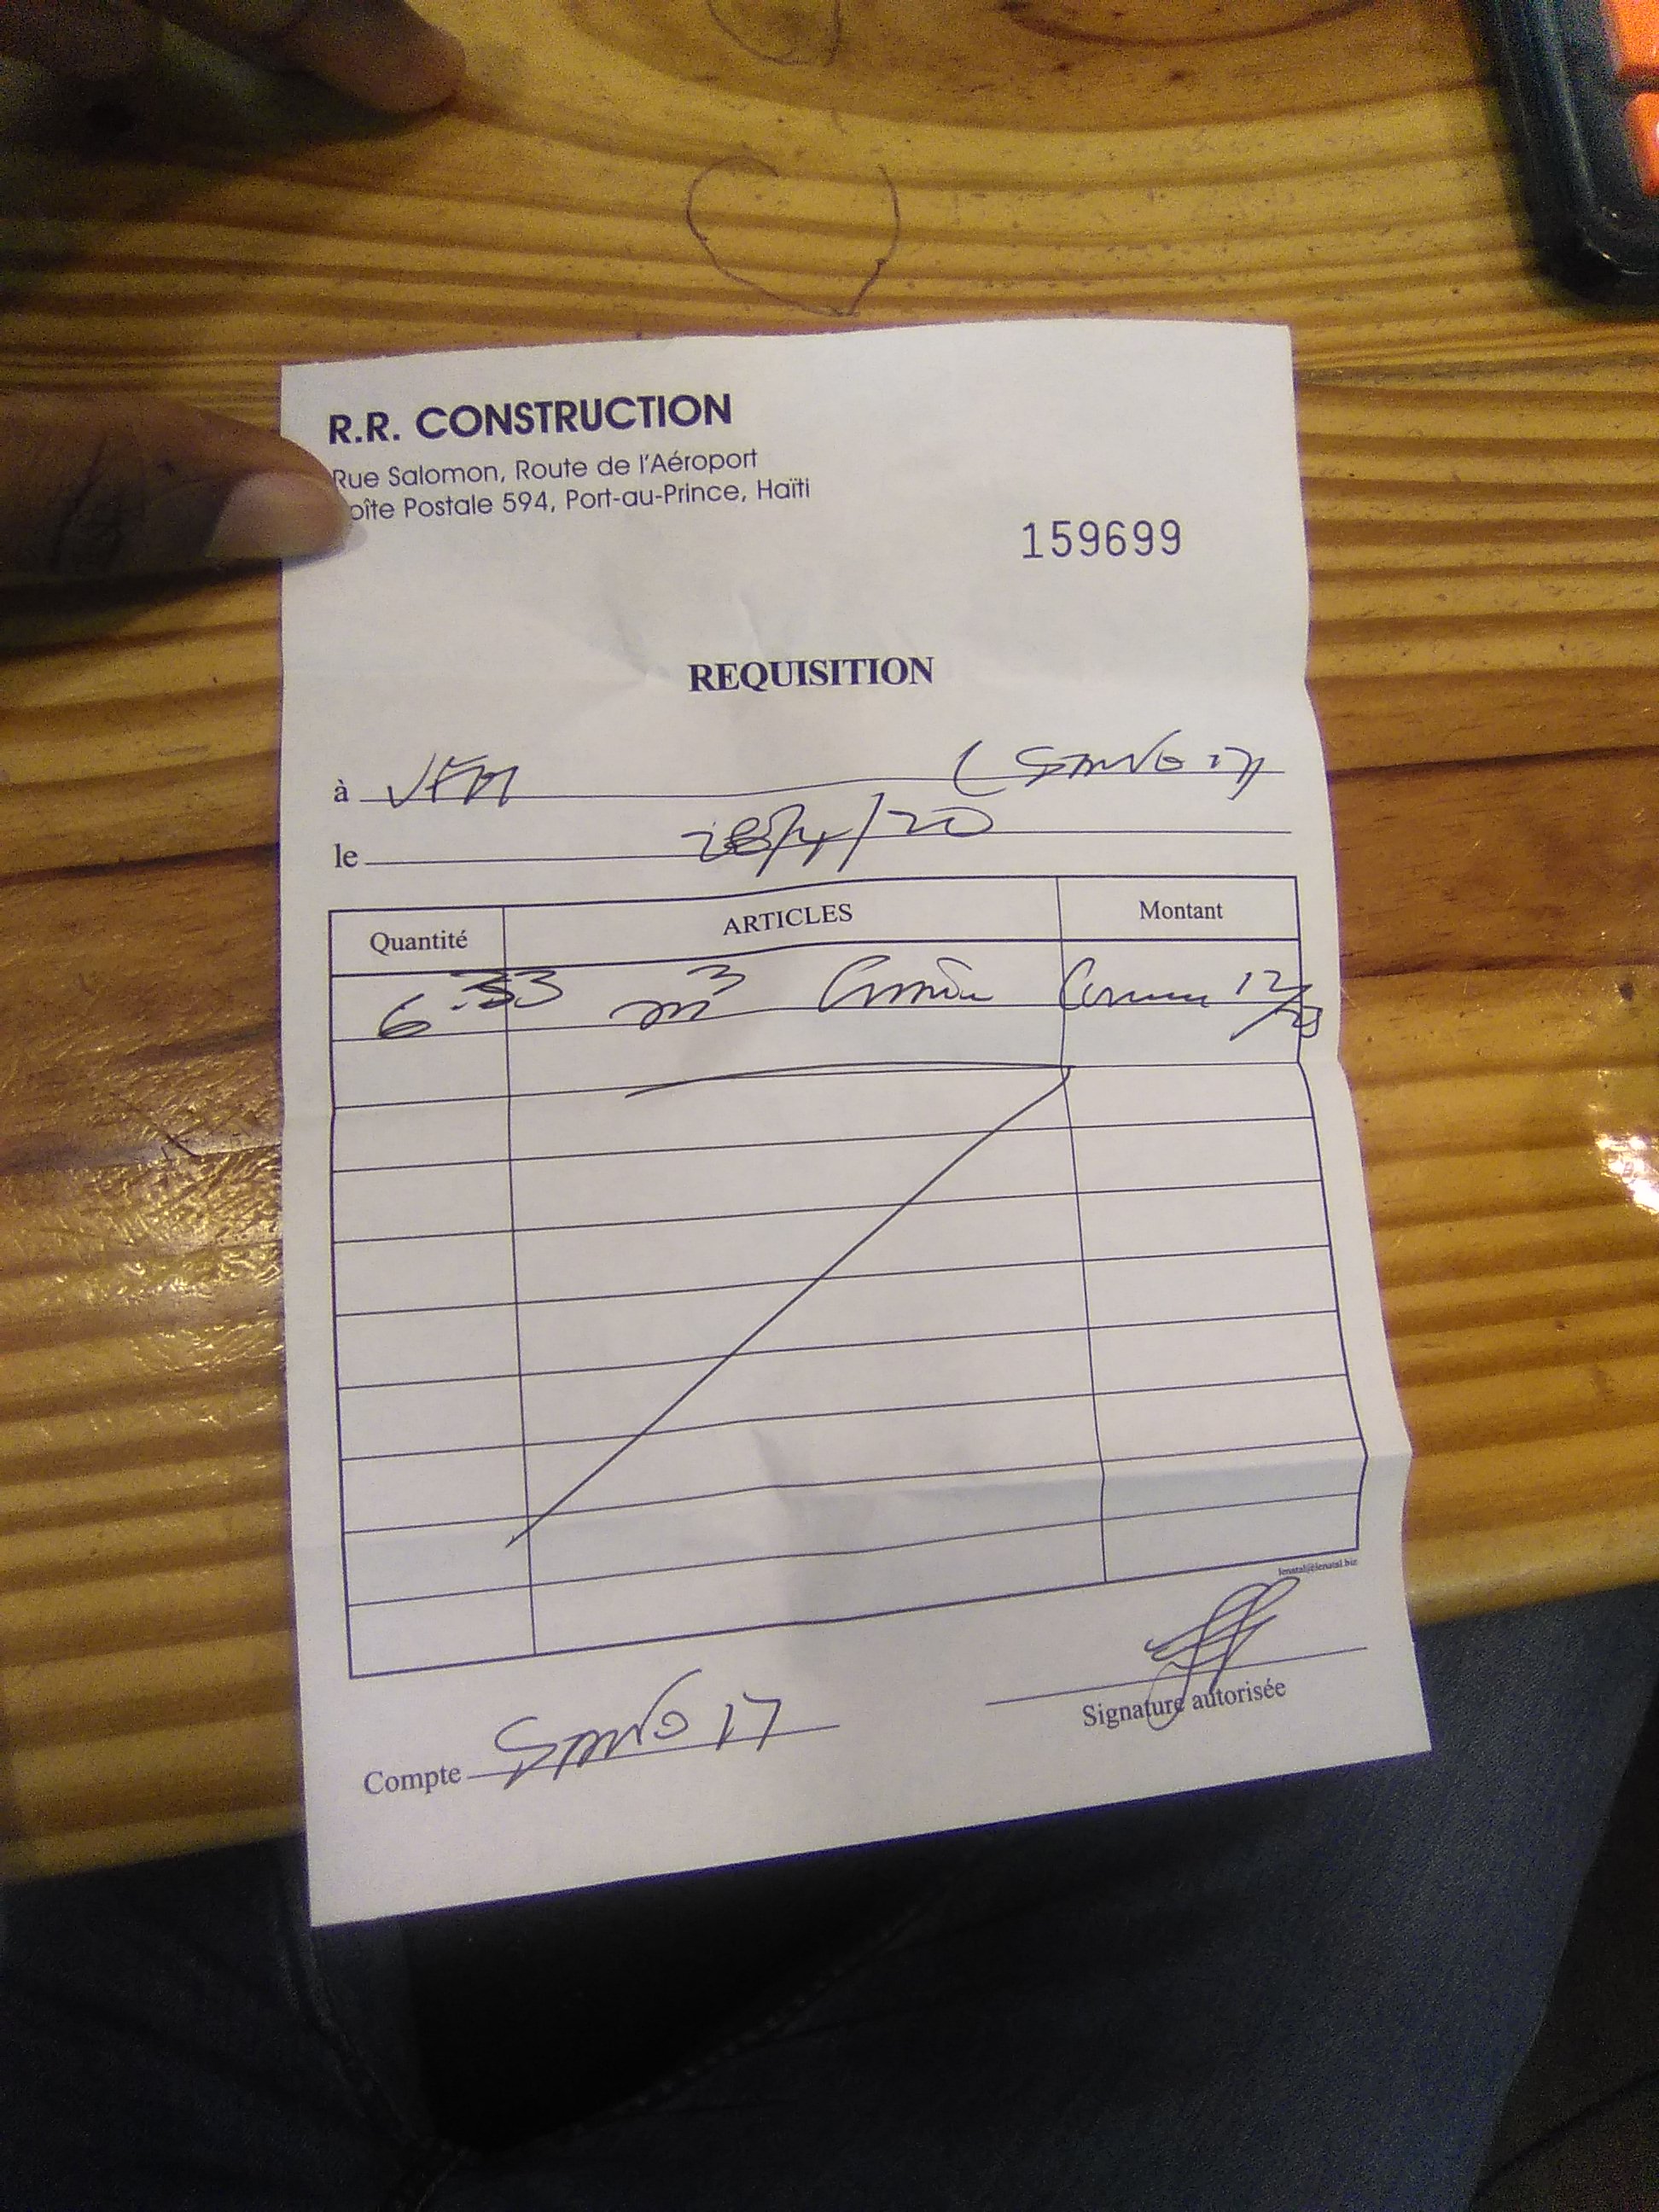 R.R. CONSTRUCTION
Rue Salomon, Route de l'Aéroport
oîte Postale 594, Port-au-Prince, Haïti
159699
REQUISITION
à
le 28/4/20
Quantité ARTICLES Montant
6.33 m³ 12/20
lenatal@lenatal.biz
Signature autorisée
Compte 17